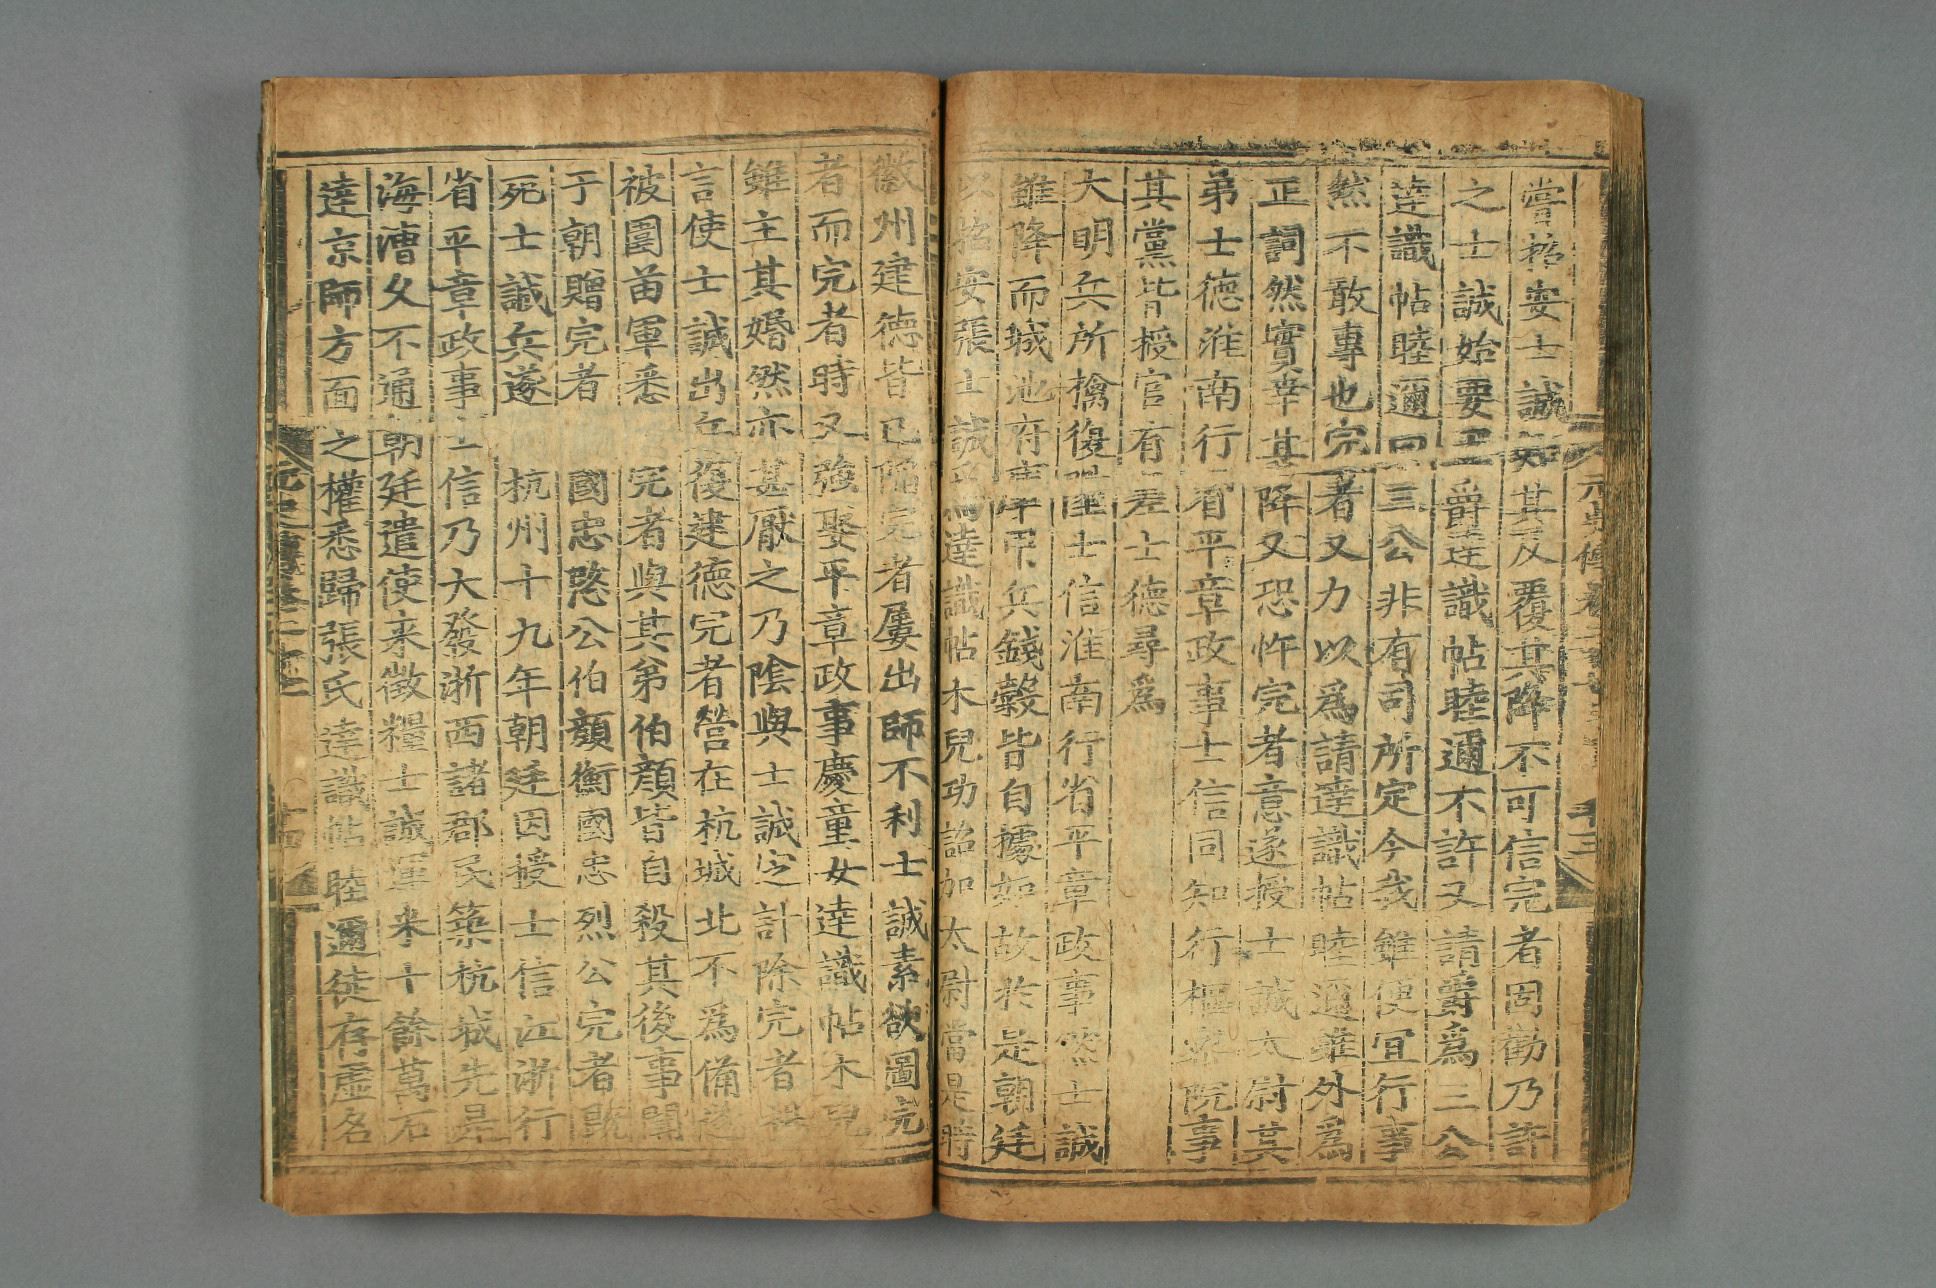 嘗招安士誠知其反覆其降不可信完者固勸乃許
之士誠始要王爵達識帖睦邇不許又請爵爲三公
達識帖睦邇曰三公非有司所定今我雖便宜行事
然不敢專也完者又力以爲請達識帖睦邇雖外爲
正詞然實幸其降又恐忤完者意遂授士誠太尉其
弟士德淮南行省平章政事士信同知行樞密院事
其黨皆授官有差士德尋爲
大明兵所擒復陞士信淮南行省平章政事然士誠
雖降而城池府庫甲兵錢穀皆自據如故於是朝廷
以招安張士誠爲達識帖木兒功詔加太尉當是時
徽州建德皆已陷完者屢出師不利士誠素欲圖完
者而完者時又強娶平章政事慶童女達識帖木兒
雖主其婚然亦甚厭之乃陰與士誠定計除完者
言使士誠出兵復建德完者營在杭城北不爲備遂
被圍苗軍悉
完者與其弟伯顏皆自殺其後事聞
于朝贈完者
國忠愍公伯顏衡國忠烈公完者既
死士誠兵遂
杭州十九年朝廷因授士信江浙行
省平章政事士信乃大發浙西諸郡民築杭城先是
海漕久不通朝廷遣使來徵糧士誠運米十餘萬石
達京師方面之權悉歸張氏達識帖睦邇徒存虛名